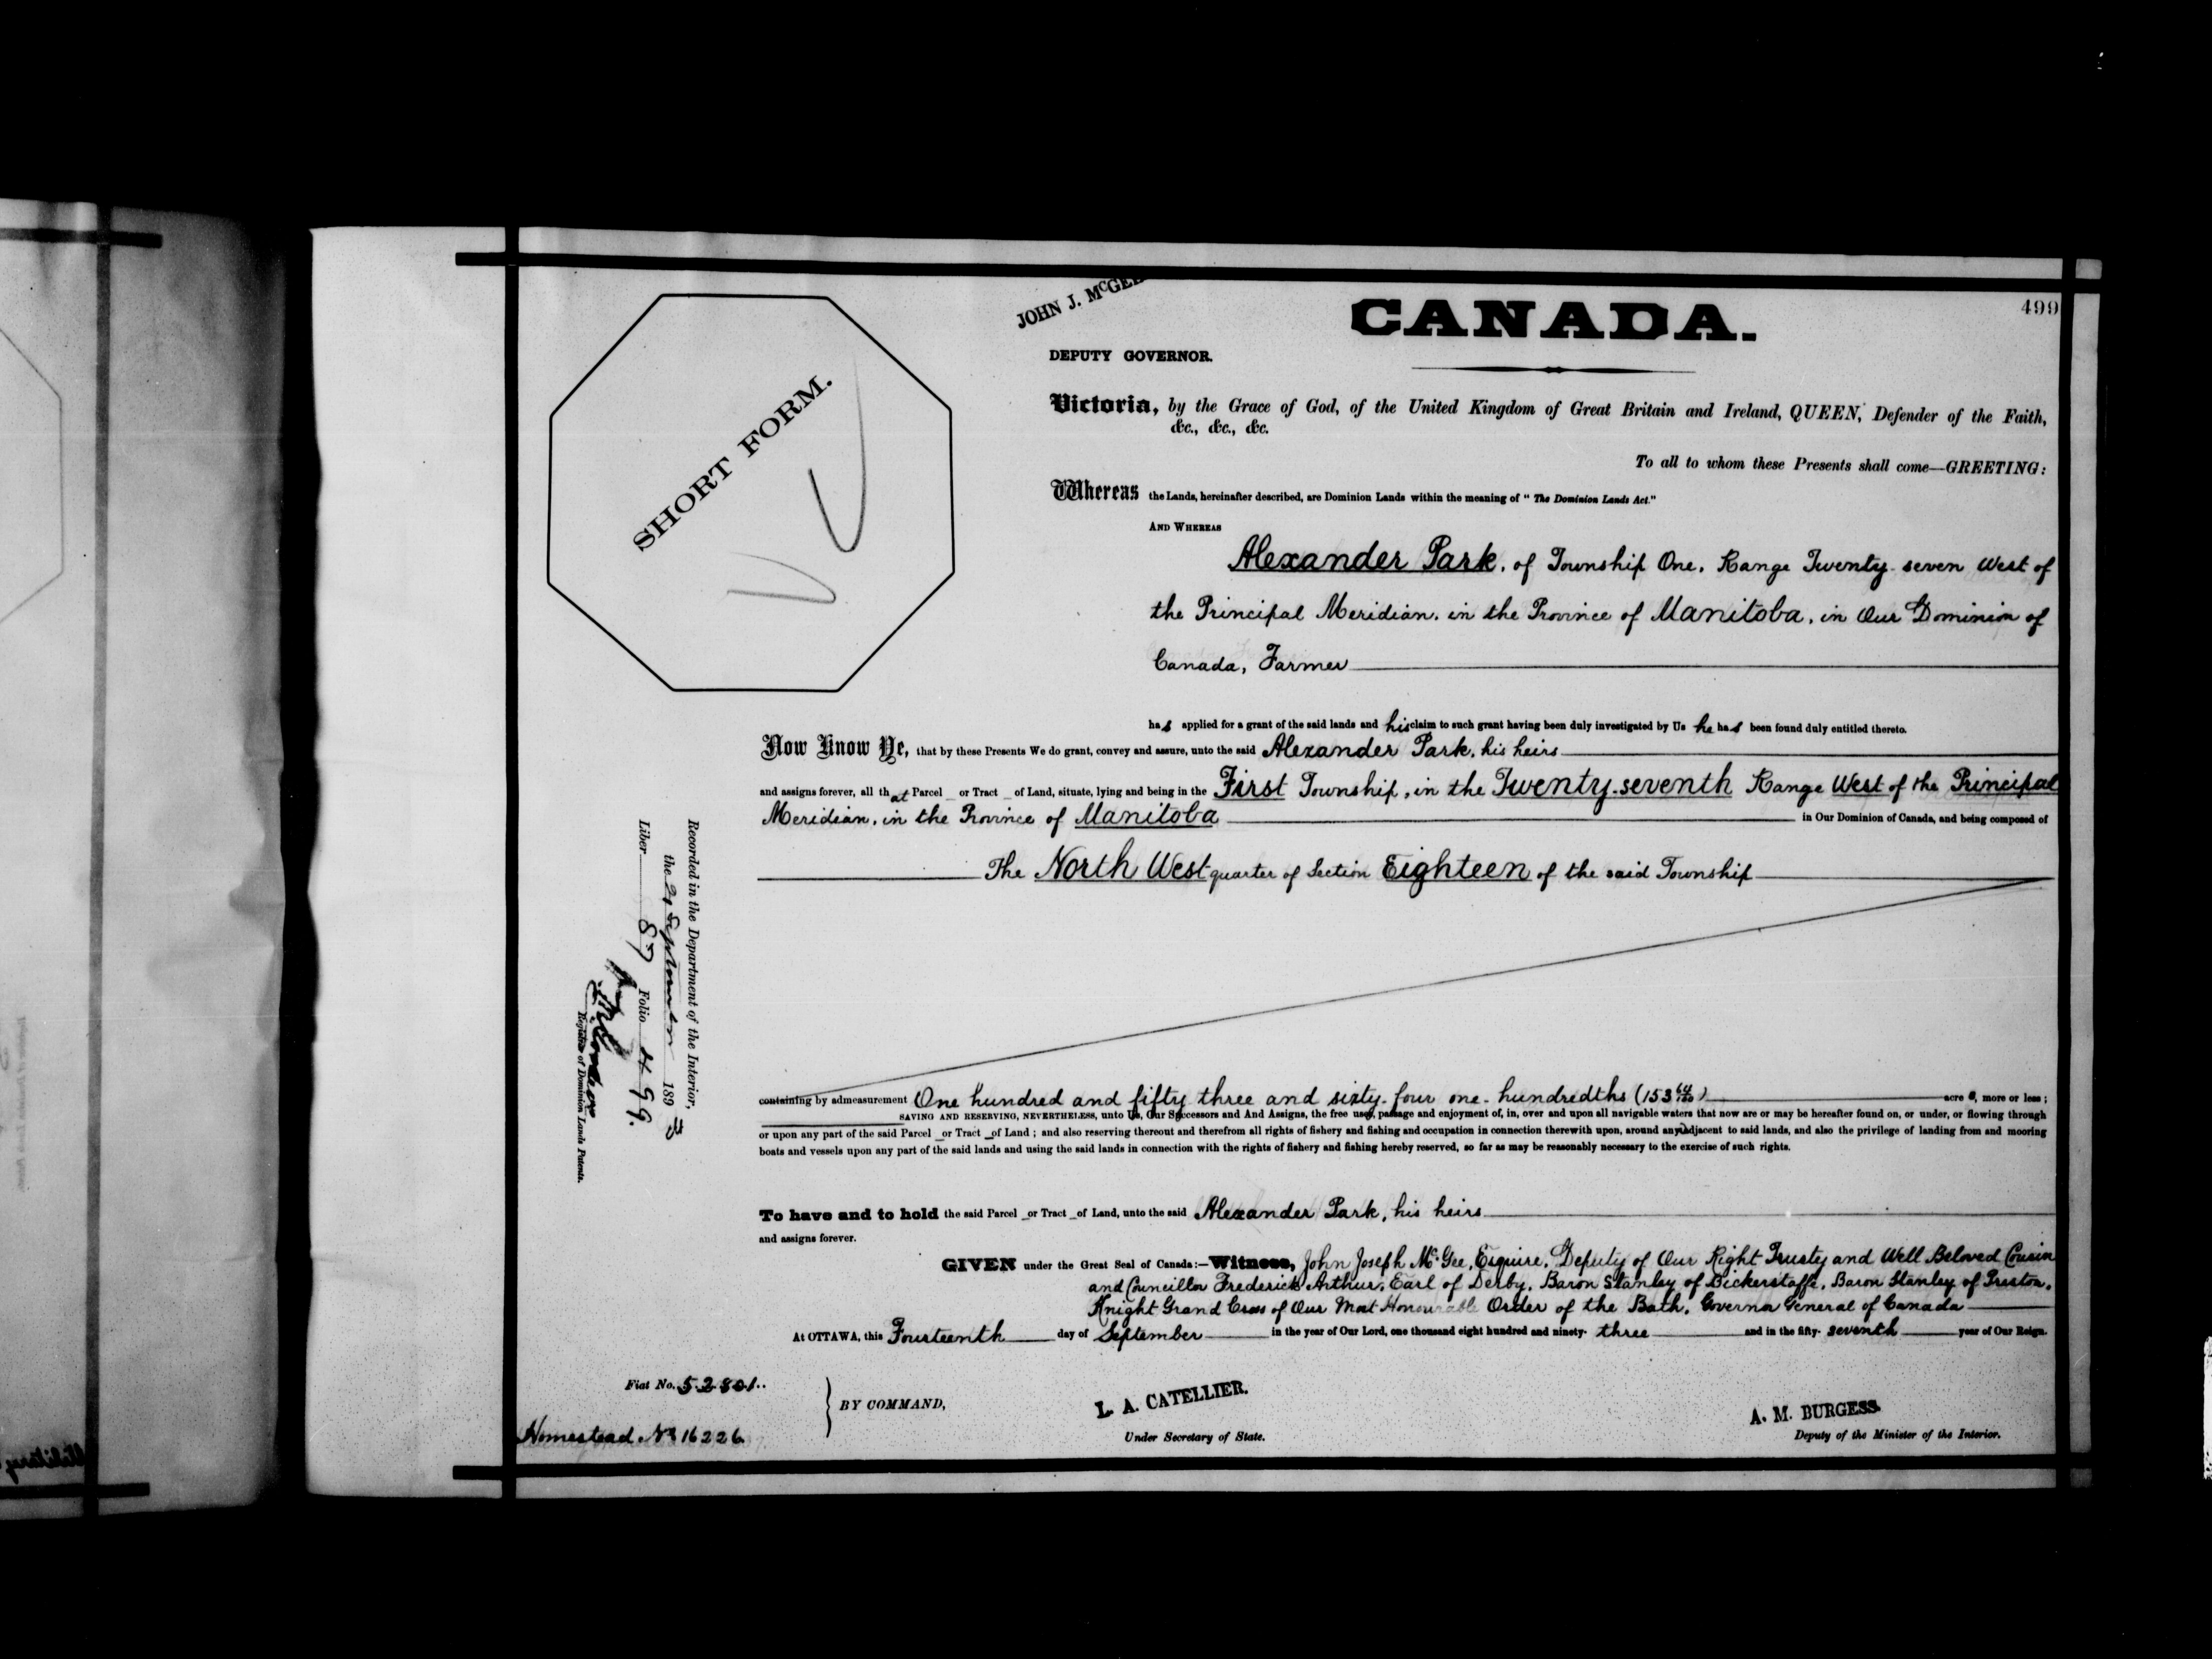 499
JOHN J. McGEE
CANADA.
DEPUTY GOVERNOR.
SHORT FORM.
Victoria, by the Grace of God, of the United Kingdom of Great Britain and Ireland, QUEEN, Defender of the Faith,
&c., &c., &c.
To all to whom these Presents shall come—GREETING:
Whereas the Lands, hereinafter described, are Dominion Lands within the meaning of "The Dominion Lands Act."
AND WHEREAS
Alexander Park, of Township One, Range Twenty-seven West of
the Principal Meridian, in the Province of Manitoba, in Our Dominion of
Canada, Farmer
has applied for a grant of the said lands and his claim to such grant having been duly investigated by Us he has been found duly entitled thereto.
Now Know Ye, that by these Presents We do grant, convey and assure, unto the said Alexander Park, his heirs
and assigns forever, all that Parcel or Tract of Land, situate, lying and being in the First Township, in the Twenty-seventh Range West of the Principal
Meridian, in the Province of Manitoba in Our Dominion of Canada, and being composed of
The North West quarter of Section Eighteen of the said Township
containing by admeasurement One hundred and fifty three and sixty-four one-hundredths (153 64/100) acres, more or less;
SAVING AND RESERVING, NEVERTHELESS, unto Us, Our Successors and And Assigns, the free uses, passage and enjoyment of, in, over and upon all navigable waters that now are or may be hereafter found on, or under, or flowing through
or upon any part of the said Parcel or Tract of Land; and also reserving thereout and therefrom all rights of fishery and fishing and occupation in connection therewith upon, around and adjacent to said lands, and also the privilege of landing from and mooring
boats and vessels upon any part of the said lands and using the said lands in connection with the rights of fishery and fishing hereby reserved, so far as may be reasonably necessary to the exercise of such rights.
To have and to hold the said Parcel or Tract of Land, unto the said Alexander Park, his heirs
and assigns forever.
GIVEN under the Great Seal of Canada:—Witness, John Joseph McGee, Esquire, Deputy of Our Right Trusty and Well Beloved Cousin
and Councillor Frederick Arthur, Earl of Derby, Baron Stanley of Bickerstaffe, Baron Stanley of Preston,
Knight Grand Cross of Our Most Honourable Order of the Bath, Governor General of Canada
At OTTAWA, this Fourteenth day of September in the year of Our Lord, one thousand eight hundred and ninety-three and in the fifty-seventh year of Our Reign.
Fiat No. 52801.
Homestead No 16226
BY COMMAND,
L. A. CATELLIER.
Under Secretary of State.
A. M. BURGESS.
Deputy of the Minister of the Interior.
Recorded in the Department of the Interior,
the 21 September 1893
Liber 87 Folio 499.
Registrar of Dominion Lands Patents.